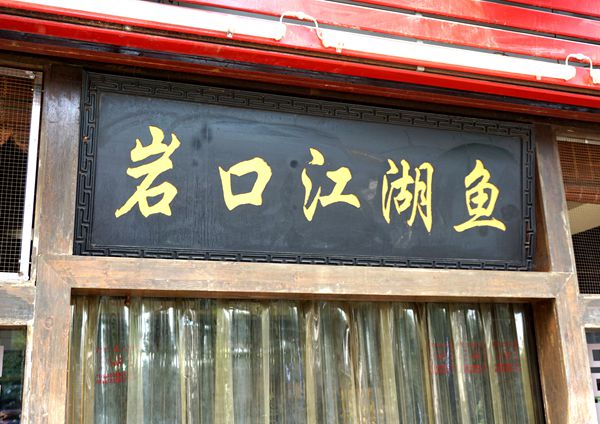 岩口江湖鱼